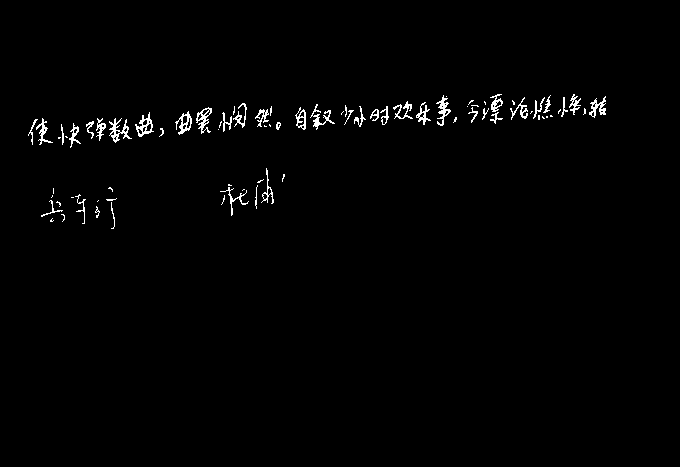 使快弹数曲，曲罢悯然。自叙少小时欢乐事，今漂沦憔悴，转
兵车行 杜甫